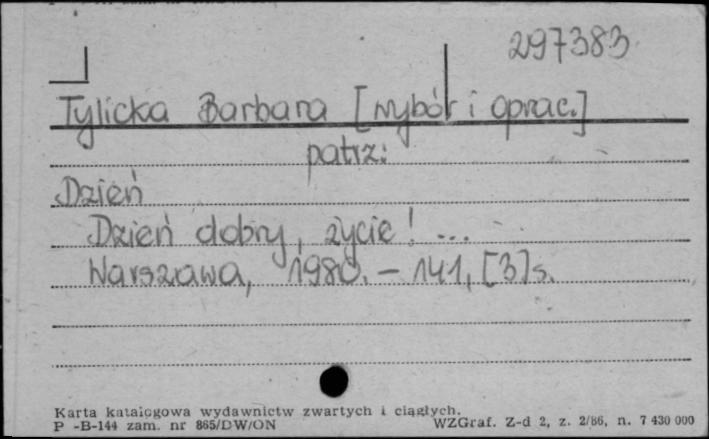 297383
Tylicka Barbara [wybór i oprac.]
patrz:
Dzień
Dzień dobry, życie! ...
Warszawa, 1980. – 141, [3] s.
Karta katalogowa wydawnictw zwartych i ciągłych.
P -B-144 zam. nr 865/DW/ON WZGraf. Z-d 2, z. 2/86, n. 7 430 000